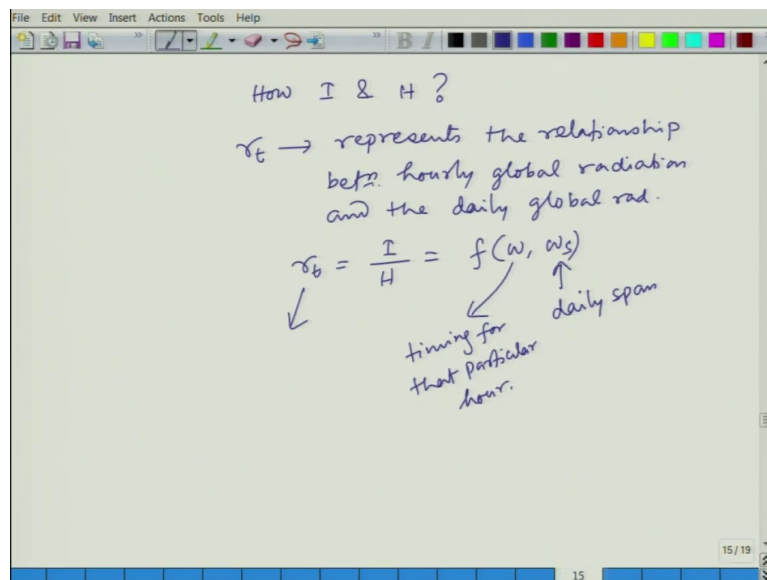 File Edit View Insert Actions Tools Help
How I & H ?
r_t → represents the relationship
betn. hourly global radiation
and the daily global rad.
r_t = I/H = f(ω, ωs)
daily span
timing for
that particular
hour.
15 / 19
15